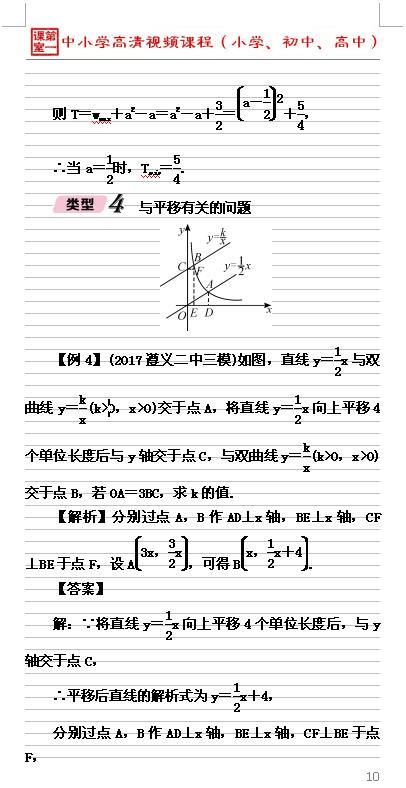 课第室一 中小学高清视频课程（小学、初中、高中）
则 T＝wmin＋a²－a＝a²－a＋3/2＝(a－1/2)²＋5/4，
∴当 a＝1/2时，Tmin＝5/4.
类型 4 与平移有关的问题
y
y=k/x
B
C
F
y=1/2x
A
O E D x
【例 4】(2017遵义二中三模)如图，直线 y＝1/2x 与双
曲线 y＝k/x(k>0，x>0)交于点A，将直线 y＝1/2x 向上平移 4
个单位长度后与 y 轴交于点C，与双曲线 y＝k/x(k>0，x>0)
交于点 B，若 OA＝3BC，求 k 的值.
【解析】分别过点 A，B 作 AD⊥x 轴，BE⊥x 轴，CF
⊥BE 于点 F，设 A(3x，3/2x)，可得 B(x，1/2x＋4).
【答案】
解：∵将直线 y＝1/2x 向上平移 4 个单位长度后，与 y
轴交于点 C，
∴平移后直线的解析式为 y＝1/2x＋4，
分别过点 A，B 作 AD⊥x 轴，BE⊥x 轴，CF⊥BE 于点
F，
10